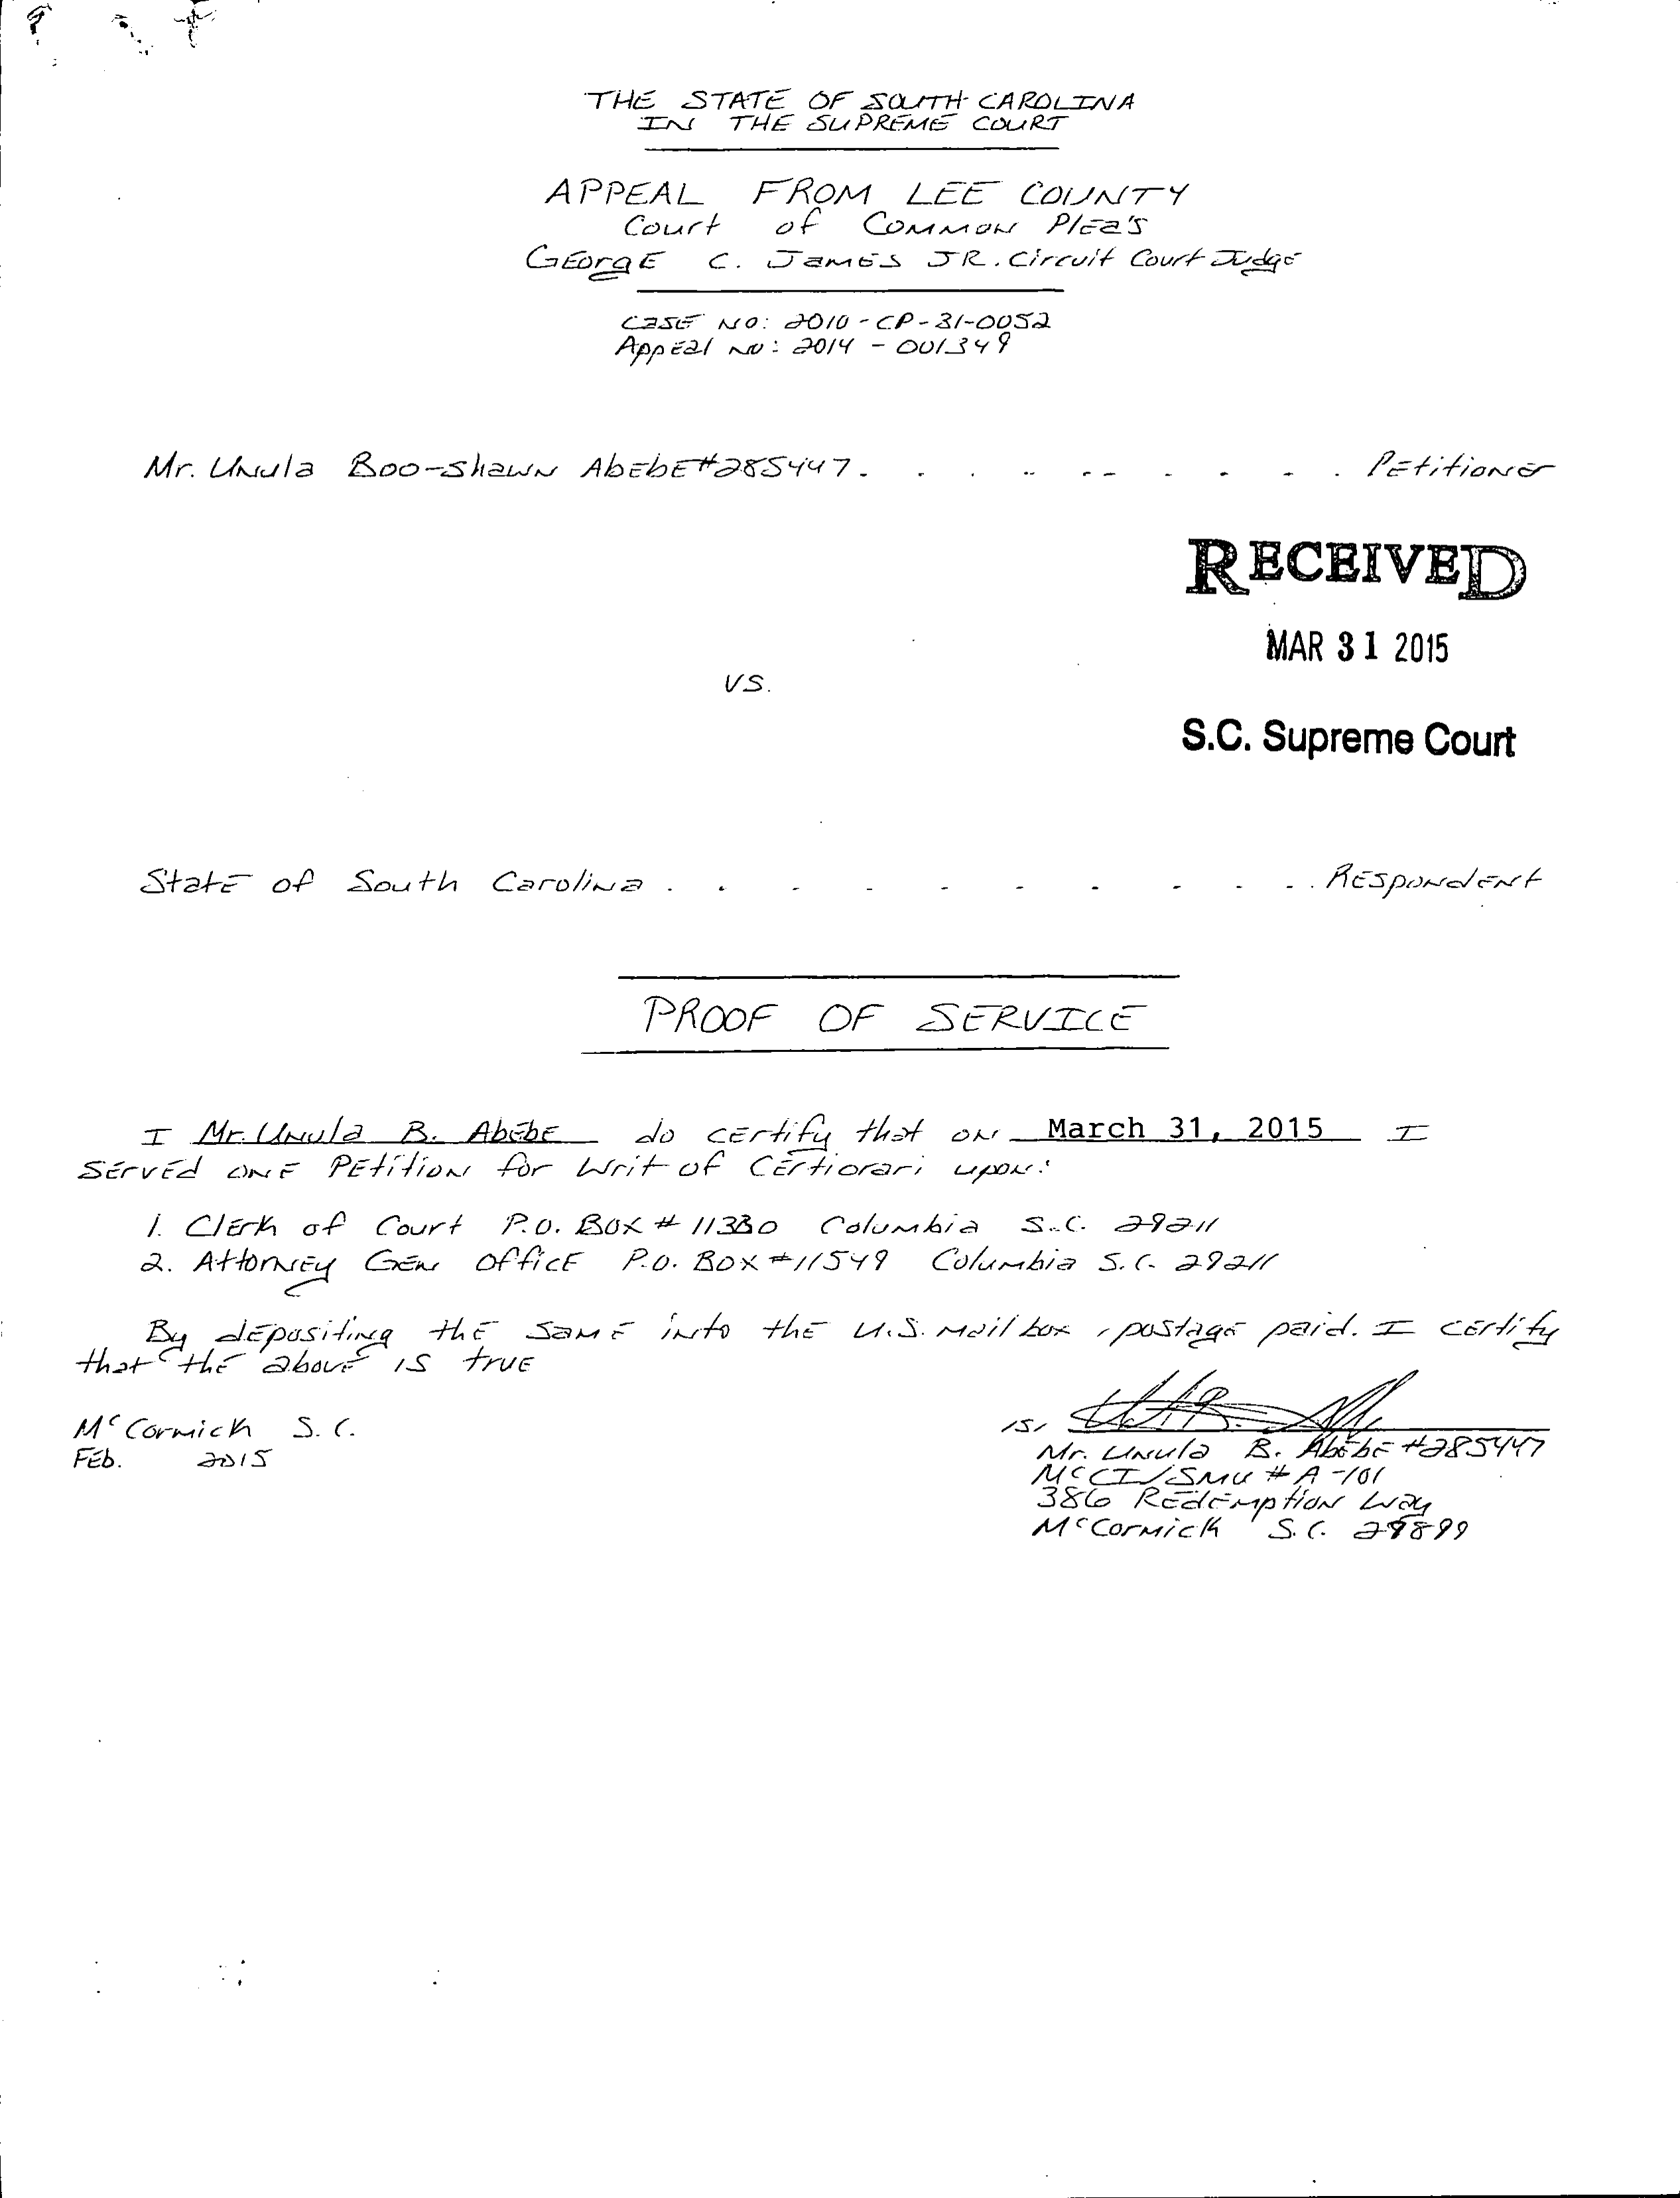 THE STATE OF SOUTH CAROLINA
IN THE SUPREME COURT
APPEAL FROM LEE COUNTY
Court of Common Plea's
George C. James JR. Circuit Court Judge
Case No: 2010-CP-31-0052
Appeal No: 2014-001349
Mr. Unula Boo-Shawn Abebe #285447. . . . . . . . . . . Petitioner
RECEIVED
MAR 31 2015
vs.
S.C. Supreme Court
State of South Carolina . . . . . . . . . . . Respondent
PROOF OF SERVICE
I Mr. Unula B. Abebe do certify that on March 31, 2015 I
served one Petition for Writ of Certiorari upon:
1. Clerk of Court P.O. Box # 11330 Columbia S.C. 29211
2. Attorney Gen Office P.O. Box #11549 Columbia S.C. 29211
By depositing the same into the U.S. mail box, postage paid. I certify
that the above is true
McCormick S.C.
Feb. 2015
/s/
Mr. Unula B. Abebe #285447
MCCI/SMU # A-101
386 Redemption Way
McCormick S.C. 29899